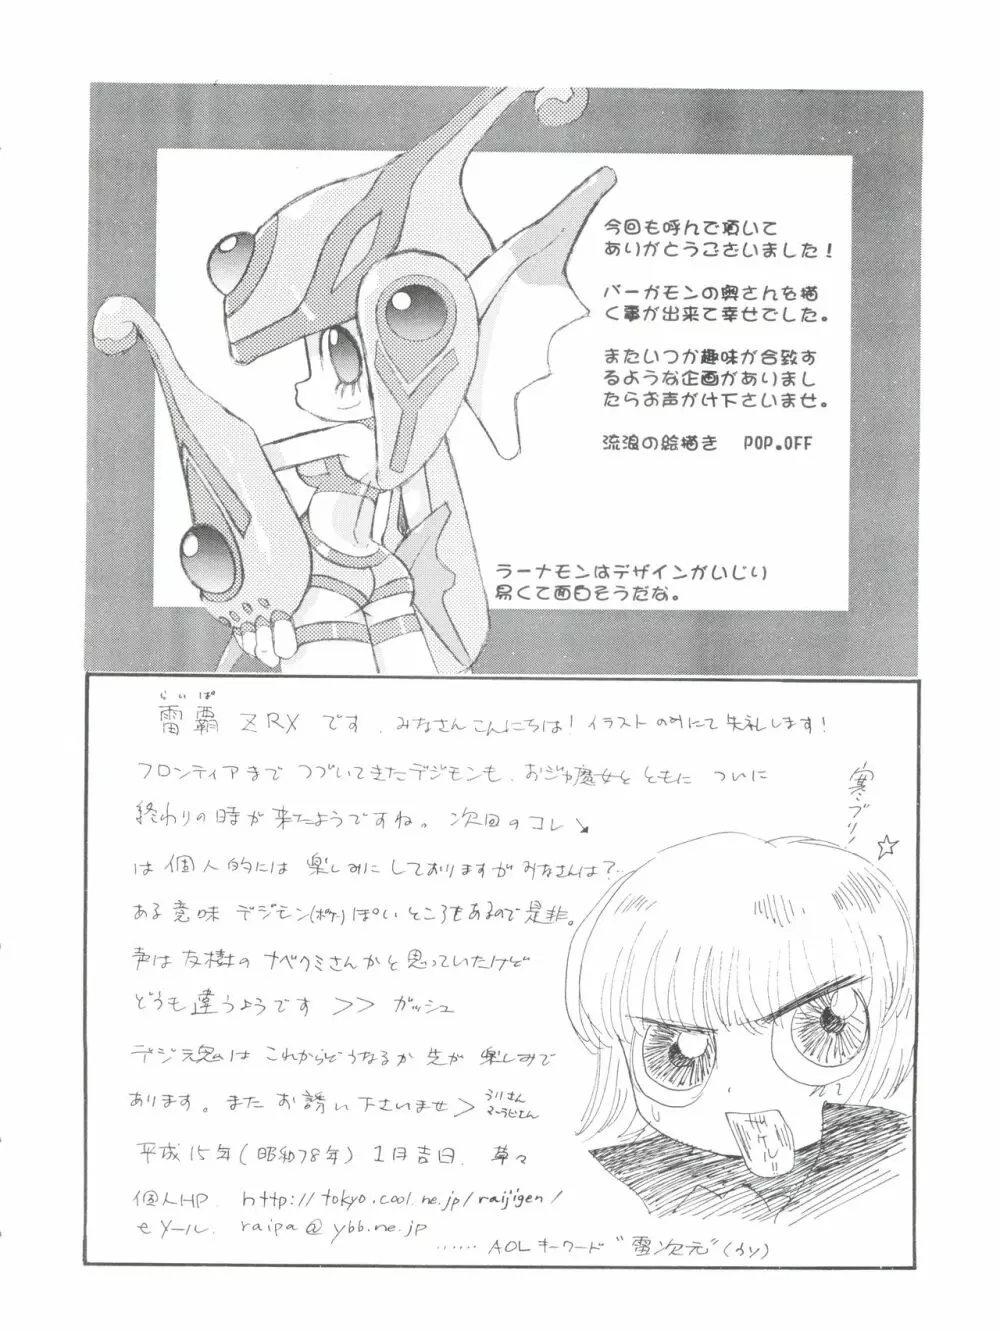 今回も呼んで頂いて
ありがとうございました！
バーガモンの奥さんを描
く事が出来て幸せでした。
またいつか趣味が合致す
るような企画がありまし
たらお声がけ下さいませ。
流浪の絵描き POP.OFF
ラーナモンはデザインがいじり
易くて面白そうだな。
らいぱ
雷覇 ZRX です、みなさんこんにちは！イラストのみにて失礼します！
フロンティアまで つづいてきたデジモンも、おジャ魔女と ともに ついに
終わりの時が 来たようですね。 次回のコレ↘
は個人的には 楽しみに しておりますが みなさんは？…
ある意味 デジモン(ポケ)ぽい ところもあるので是非。
声は友樹の ナベクミさんかと思っていたけど
どうも違うようです >> ガッシュ
デジ魂は これからどうなるか 先が 楽しみで
あります。また お誘い下さいませ>
平成15年(昭和78年) 1月吉日、 草々
個人HP. http://tokyo.cool.ne.jp/raijigen/
eメール. raipa@ybb.ne.jp
……AOLキーワード "雷次元"(ウソ)
寒ブリ！
☆
ザケル!!